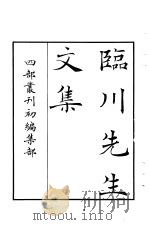 臨川先生
文集
四部叢刊初編集部
mtoou.info